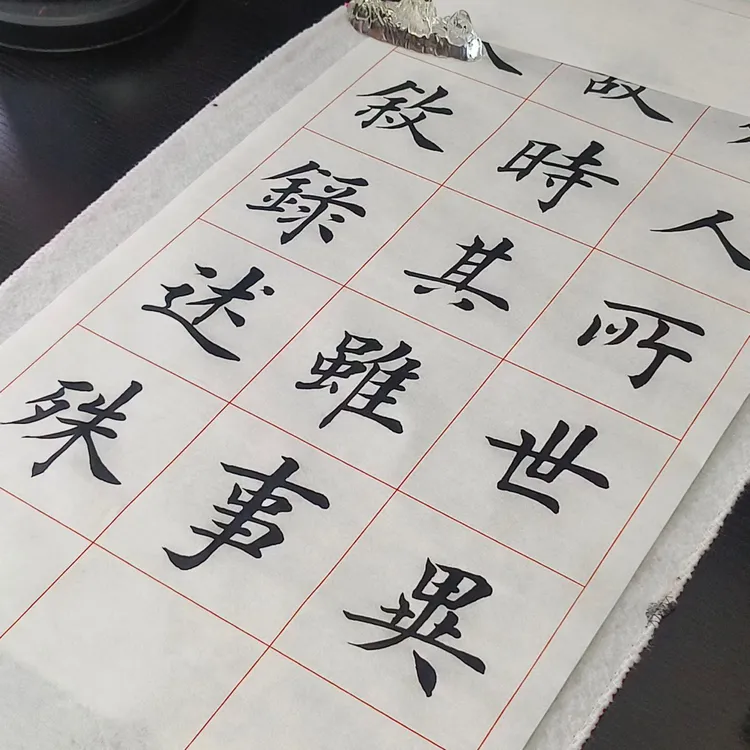 故
敘時人
錄其所
述雖世
殊事異